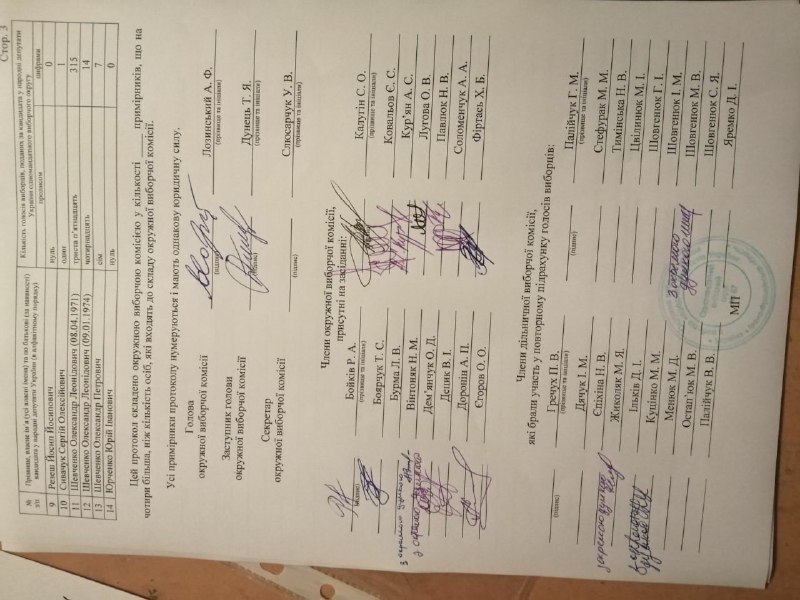 Стор. 3
№ з/п Прізвище, власне ім'я (усі власні імена) та по батькові (за наявності) кандидата у народні депутати України (в алфавітному порядку) Кількість голосів виборців, поданих за кандидата у народні депутати України одномандатного виборчого округу
прописом цифрами
9 Резеш Йосип Йосипович нуль 0
10 Сивачук Сергій Олексійович один 1
11 Шевченко Олександр Леонідович (08.04.1971) триста п'ятнадцять 315
12 Шевченко Олександр Леонідович (09.01.1974) чотирнадцять 14
13 Шевченко Олександр Петрович сім 7
14 Юрченко Юрій Іванович нуль 0
Цей протокол складено окружною виборчою комісією у кількості примірників, що на
чотири більша, ніж кількість осіб, які входять до складу окружної виборчої комісії.
Усі примірники протоколу нумеруються і мають однакову юридичну силу.
Голова
окружної виборчої комісії Лозинський А. Ф.
(підпис) (прізвище та ініціали)
Заступник голови
окружної виборчої комісії Дунець Т. Я.
(підпис) (прізвище та ініціали)
Секретар
окружної виборчої комісії Слюсарчук У. В.
(підпис) (прізвище та ініціали)
Члени окружної виборчої комісії,
присутні на засіданні:
Бойків Р. А. Калугін С. О.
(підпис) (прізвище та ініціали) (прізвище та ініціали)
Боярчук Т. С. Ковальов Є. С.
Бурма Л. В. Кур'ян А. С.
з окремою думкою Вінтоняк Н. М. Лугова О. В.
з окремою думкою Дем'янчук О. Д. Павлюк Н. В.
Децик В. І. Соломенчук А. А.
Доронін А. П. Фіртась Х. Б.
Єгоров О. О.
Члени дільничної виборчої комісії,
які брали участь у повторному підрахунку голосів виборців:
Гречух П. В. Палійчук Г. М.
(підпис) (прізвище та ініціали) (підпис) (прізвище та ініціали)
Дячук І. М. Стефурак М. М.
Єпіхіна Н. В. Тимінська Н. В.
Жиколяк М. Я. Цвілинюк М. І.
Ільків Д. І. Шовгенюк Г. І.
Куцінко М. М. Шовгенюк І. М.
Менюк М. Д. Шовгенюк М. В.
Остап'юк М. В. Шовгенюк С. Я.
Палійчук В. В. Яремко Д. І.
з окремою
МП